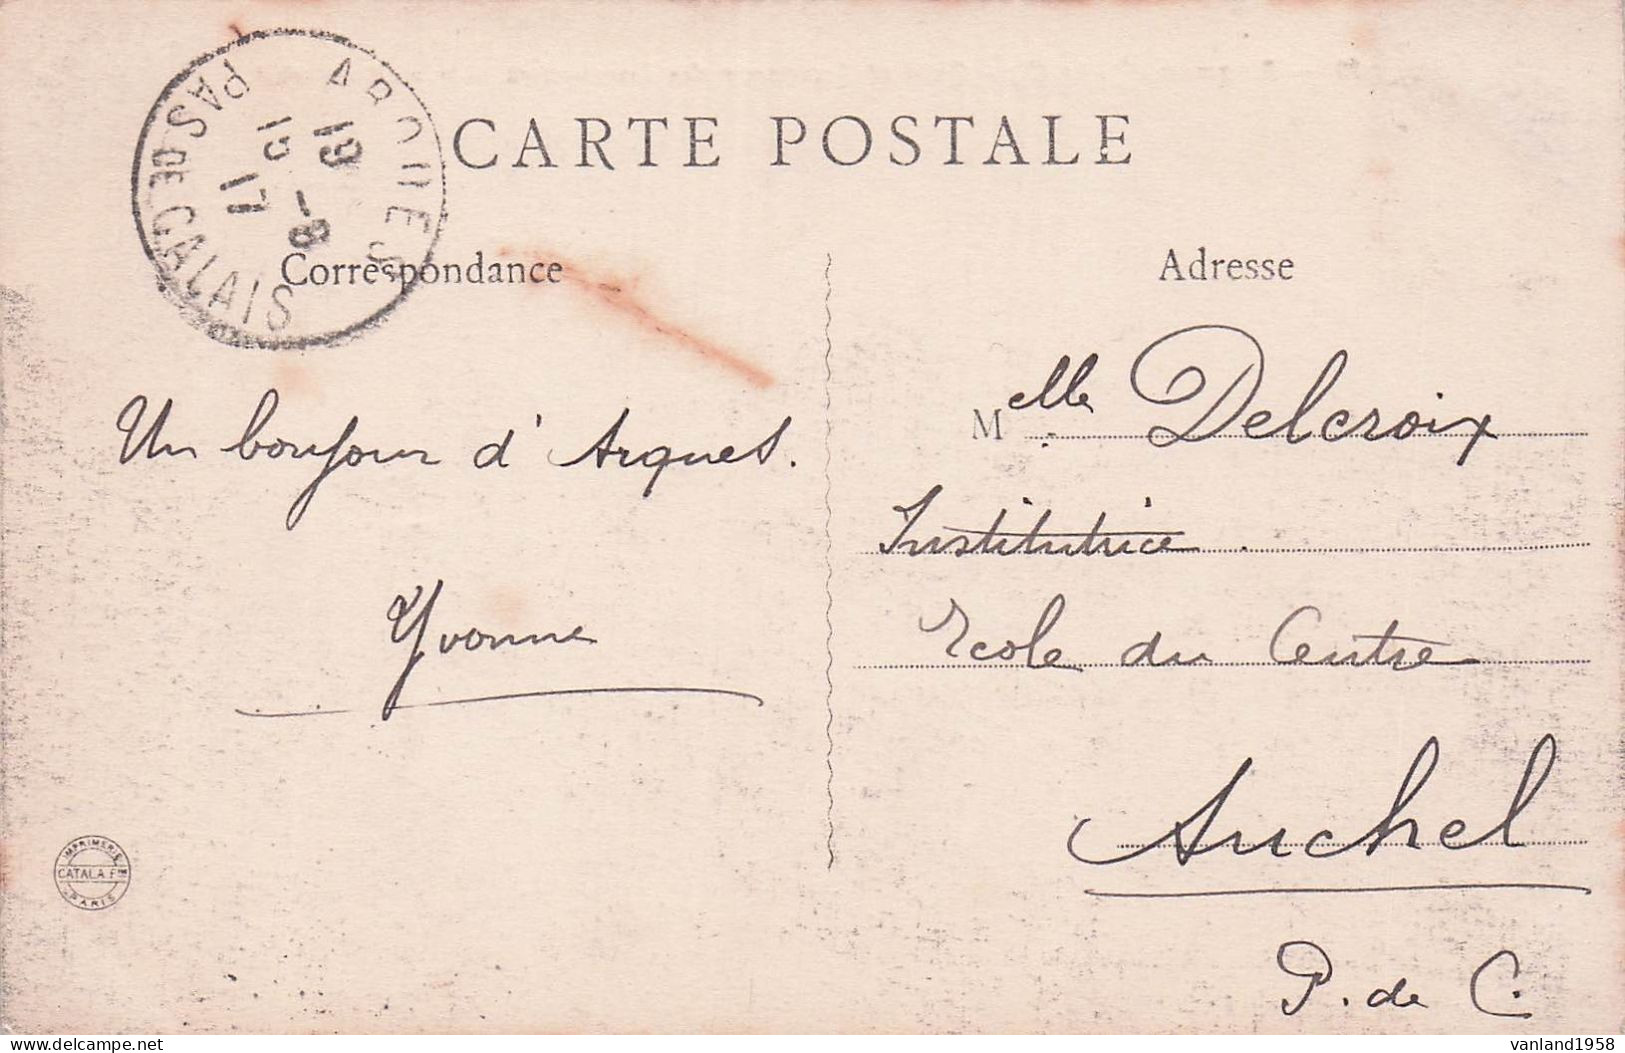 CARTE POSTALE
ARQUES
PAS DE CALAIS
19
15 -8
17
Correspondance
Adresse
Un bonjour d'Arques.
Yvonne
Melle Delcroix
Institutrice.
Ecole du Centre
Auchel
P. de C.
IMPRIMERIE
CATALA Fres
PARIS
delcampe.net
vanland1958